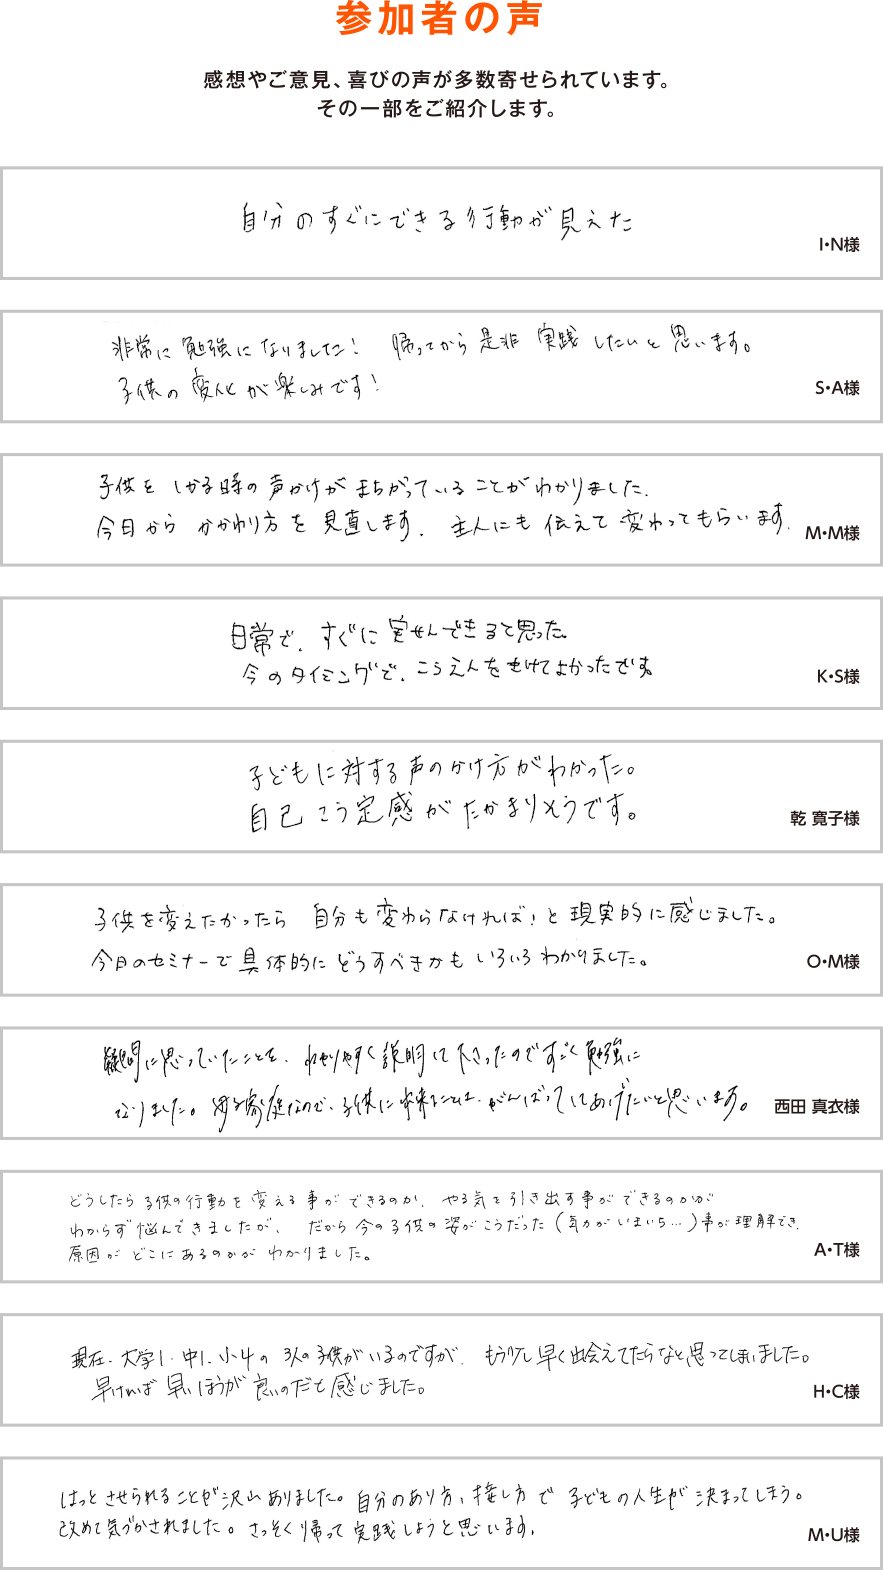 参加者の声
感想やご意見、喜びの声が多数寄せられています。
その一部をご紹介します。
自分のすぐにできる行動が見えた
I・N様
非常に勉強になりました! 帰ってから是非 実践したいと思います。
子供の変化が楽しみです!
S・A様
子供を しかる時の声かけがまちがっていることがわかりました.
今日から かかわり方を見直します. 主人にも伝えて変わってもらいます.
M・M様
日常で、すぐに実せんできると思った。
今のタイミングで、こうえんをきけてよかったです。
K・S様
子どもに対する声のかけ方がわかった。
自己こう定感がたかまりそうです。
乾 寛子様
子供を変えたかったら 自分も変わらなければ!と現実的に感じました。
今日のセミナーで具体的にどうすべきかもいろいろわかりました。
O・M様
疑問に思っていたことを、わかりやすく説明して下さったのですごく勉強に
なりました。母子家庭なので、子供に出来ることは、がんばってしてあげたいと思います。
西田 真衣様
どうしたら子供の行動を変える事ができるのか、やる気を引き出す事ができるのかが
わからず悩んできましたが、だから今の子供の姿がこうだった(気力がいまいち…)事が理解でき、
原因がどこにあるのかがわかりました。
A・T様
現在、大学1、中1、小4の3人の子供がいるのですが、もう少し早く出会えてたらなと思ってしまいました。
早ければ早いほうが良いのだと感じました。
H・C様
はっとさせられることが沢山ありました。自分のあり方、接し方で子どもの人生が決まってしまう。
改めて気づかされました。さっそく帰って実践しようと思います.
M・U様